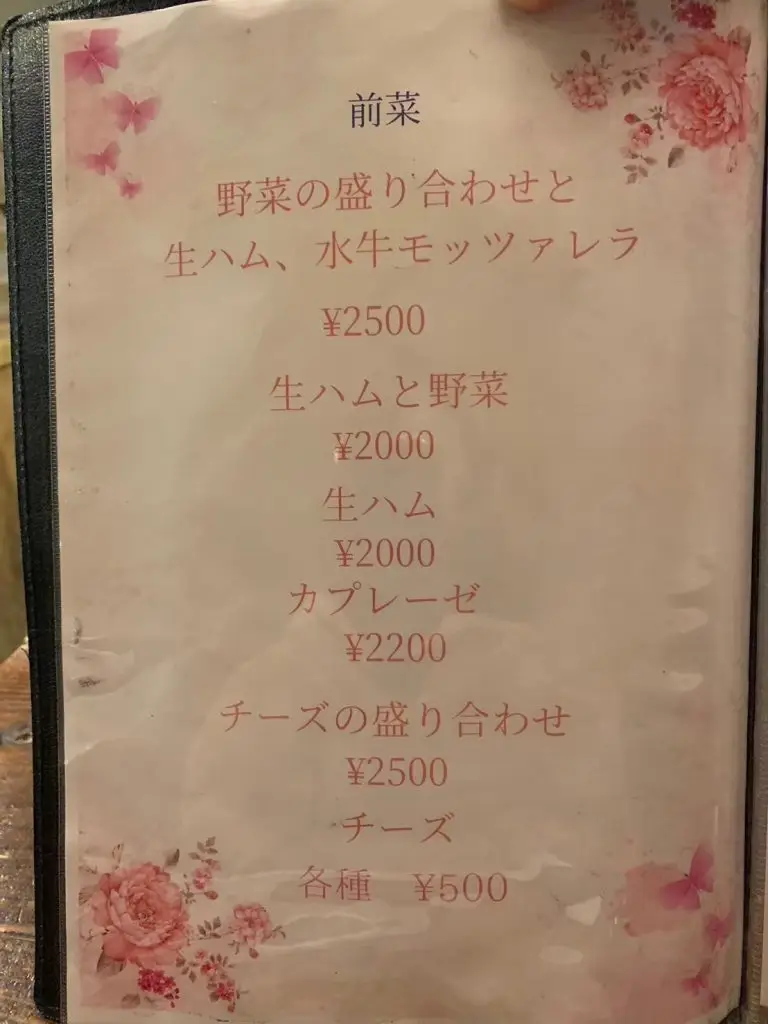 前菜
野菜の盛り合わせと
生ハム、水牛モッツァレラ
¥2500
生ハムと野菜
¥2000
生ハム
¥2000
カプレーゼ
¥2200
チーズの盛り合わせ
¥2500
チーズ
各種　¥500